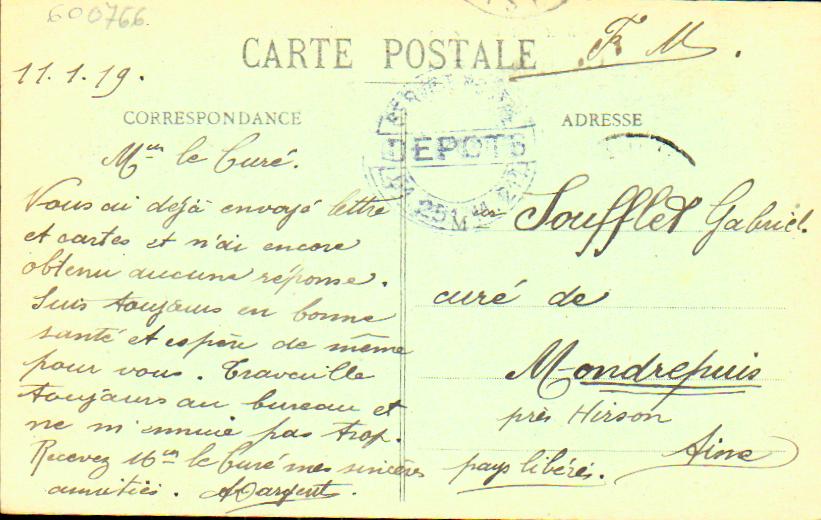 600766.
CARTE POSTALE
F. M.
11.1.19.
CORRESPONDANCE
ADRESSE
DEPOTS
Mʳ le Curé.
Vous ai déjà envoyé lettre
et cartes et n'ai encore
obtenu aucune réponse.
Suis toujours en bonne
santé et espère de même
pour vous. Travaille
toujours au bureau et
ne m'ennuie pas trop.
Recevez Mʳ le Curé mes sincères
amitiés.
Soufflet Gabriel
curé de
Mondrepuis
près Hirson
Aisne
pays libérés.